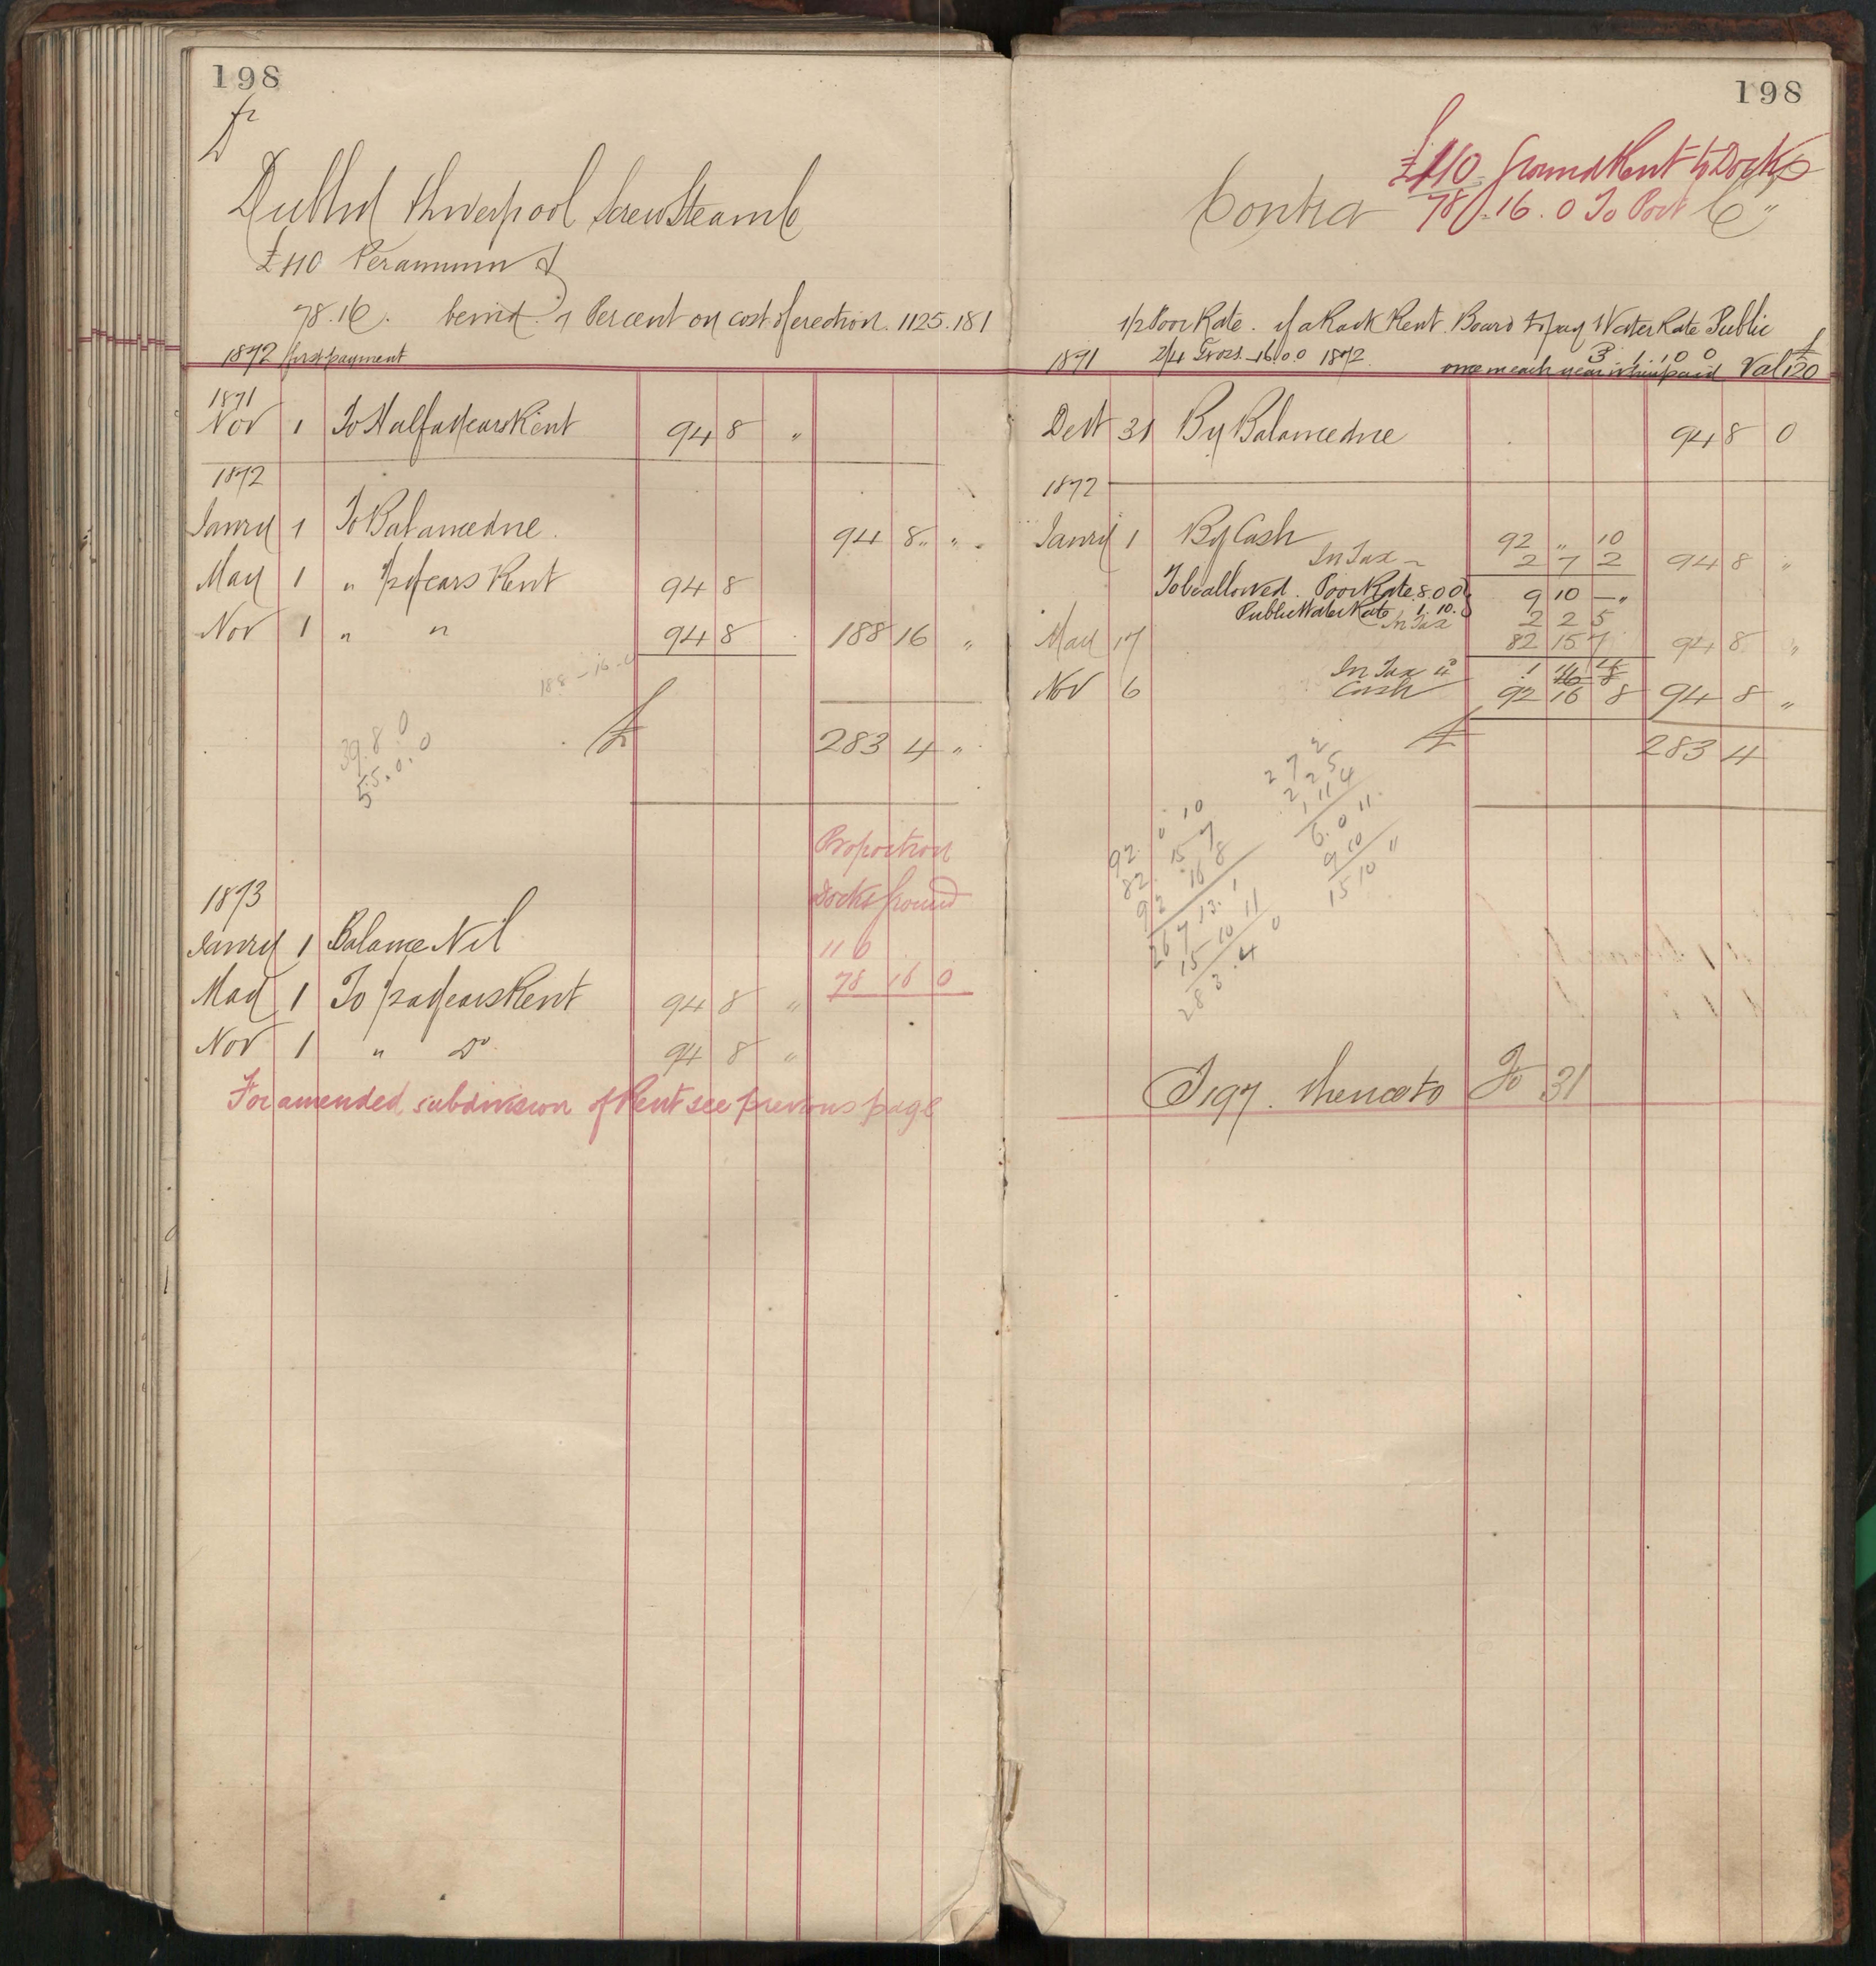 198
Dr
Dublin & Liverpool Screw Steam Co
£110 Per annum &
78.16. being 7 Per cent on cost of erection. 1125.18.1
1872 first payment
1871
Nov 1 To Half a Years Rent 94 8 "
1872
Janry 1 To Balance due. 94 8 " "
May 1 " 1/2 Years Rent 94 8
Nov 1 " " 94 8 188 16 "
188-16-0
£ 283 4 "
39.8 0
5.0.0
5
Proportion
Docks Ground
1873
Janry 1 Balance Nil 110
May 1 To 1/2 a Years Rent 94 8 " 78 16 0
Nov 1 " Do 94 8 "
For amended subdivision of Rent see previous page
198
£110 Ground Rent to Docks
Contra 78.16.0 To Port Cr
1/2 Poor Rate. if a Rack Rent. Board to pay Water Rate Public
1871 2/4 Gross. 16.0.0 1872. 3 1.10 0 once in each year when paid £ Val 120
Decr 31 By Balance due 94 8 0
1872
Janry 1 By Cash 92 " 10
In Tax 2 7 2 94 8 "
To be allowed. Poor Rate 8.0.0 9 10 - "
Public Water Rate 1.10.
In Tax 2 2 5
May 17 82 15 7 94 8 "
In Tax 1 11 4
Nov 6 Cash 92 16 8 94 8 "
£ 283 4
2 7 2
2 2 5
1 11 4
6.0 11
9 10
15 10 11
92 0 10
82 15 7
92 16 8
267 13. 1
15 10 11
283.4 0
F 197. thence to Fo 31